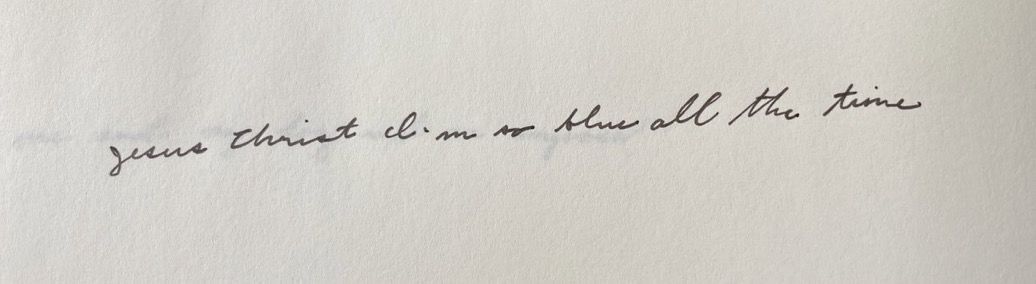 jesus christ i'm so blue all the time